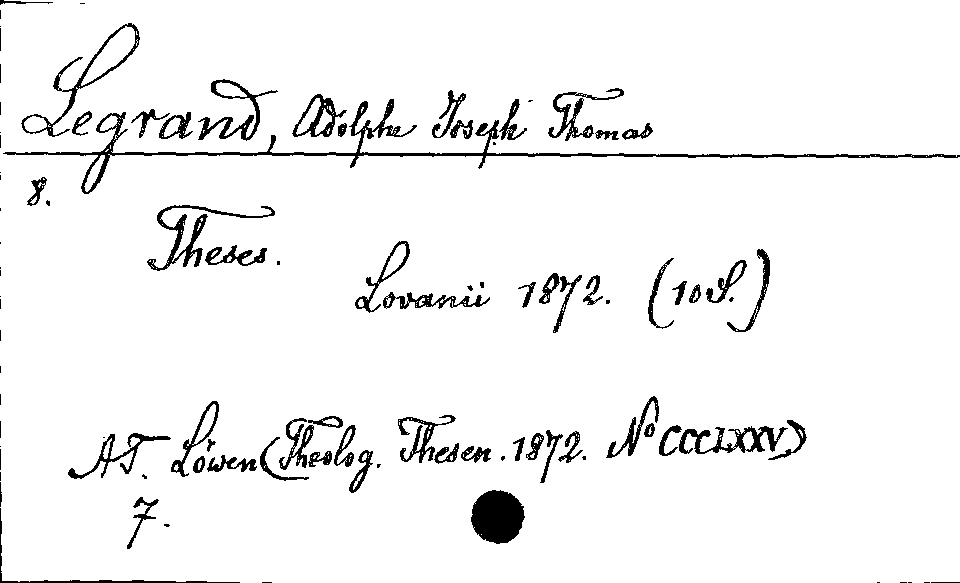 Legrand, Adolphe Joseph Thomas
8.
Theses.
Lovanii 1872. (10 S.)
AT. Löwen (Theolog. Thesen. 1872. No CCCLXXV)
7.